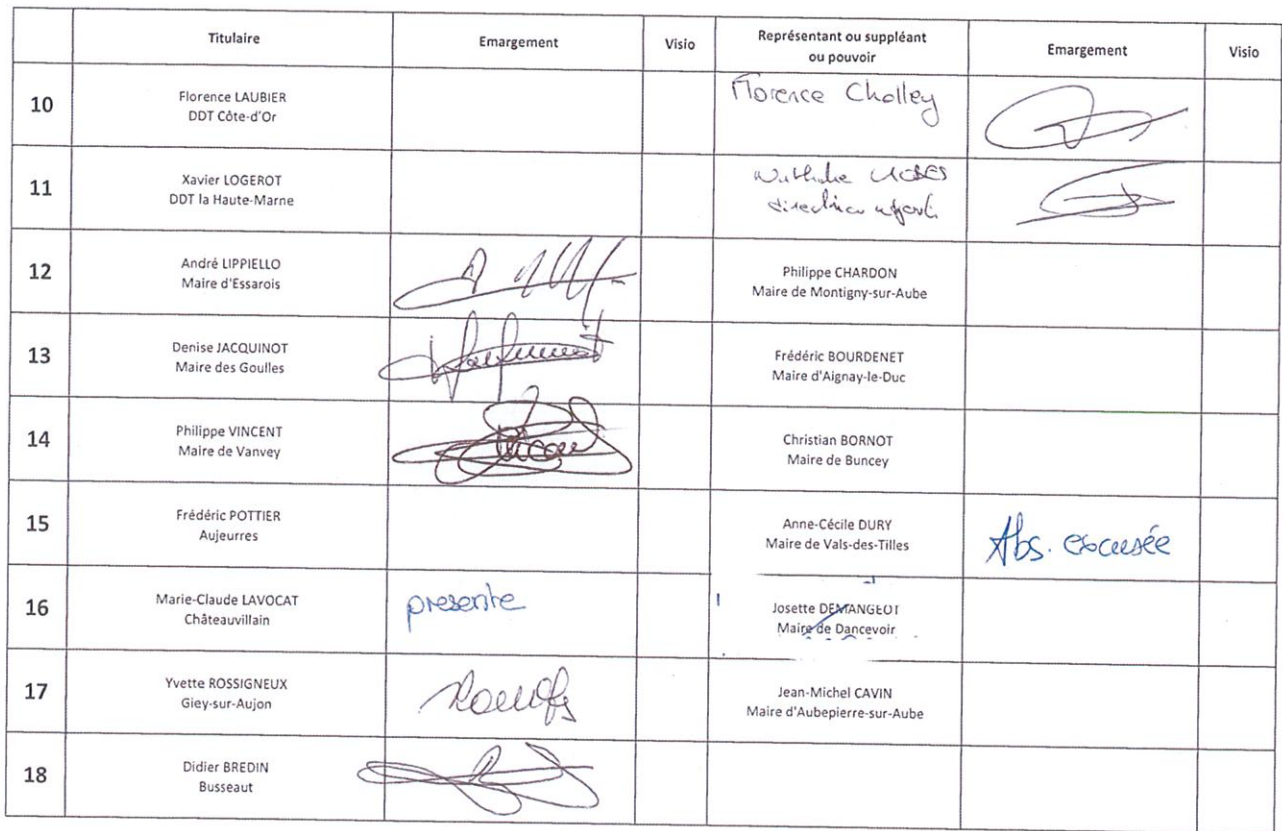 Titulaire
Emargement
Visio
Représentant ou suppléant
ou pouvoir
Emargement
Visio
10
Florence LAUBIER
DDT Côte-d'Or
Florence Cholley
11
Xavier LOGEROT
DDT la Haute-Marne
12
André LIPPIELLO
Maire d'Essarois
Philippe CHARDON
Maire de Montigny-sur-Aube
13
Denise JACQUINOT
Maire des Goulles
Frédéric BOURDENET
Maire d'Aignay-le-Duc
14
Philippe VINCENT
Maire de Vanvey
Christian BORNOT
Maire de Buncey
15
Frédéric POTTIER
Aujeurres
Anne-Cécile DURY
Maire de Vals-des-Tilles
Abs. excusée
16
Marie-Claude LAVOCAT
Châteauvillain
presente
Josette DEMANGEOT
Maire de Dancevoir
17
Yvette ROSSIGNEUX
Giey-sur-Aujon
Jean-Michel CAVIN
Maire d'Aubepierre-sur-Aube
18
Didier BREDIN
Busseaut